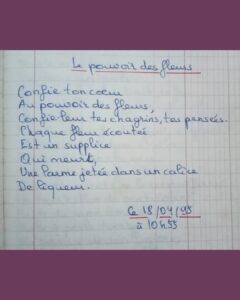 Le pouvoir des fleurs
Confie ton coeur
Au pouvoir des fleurs,
Confie-leur tes chagrins, tes pensées.
Chaque fleur écoutée
Est un supplice
Qui meurt,
Une larme jetée dans un calice
De liqueur.
Ce 18/04/95
à 10h55